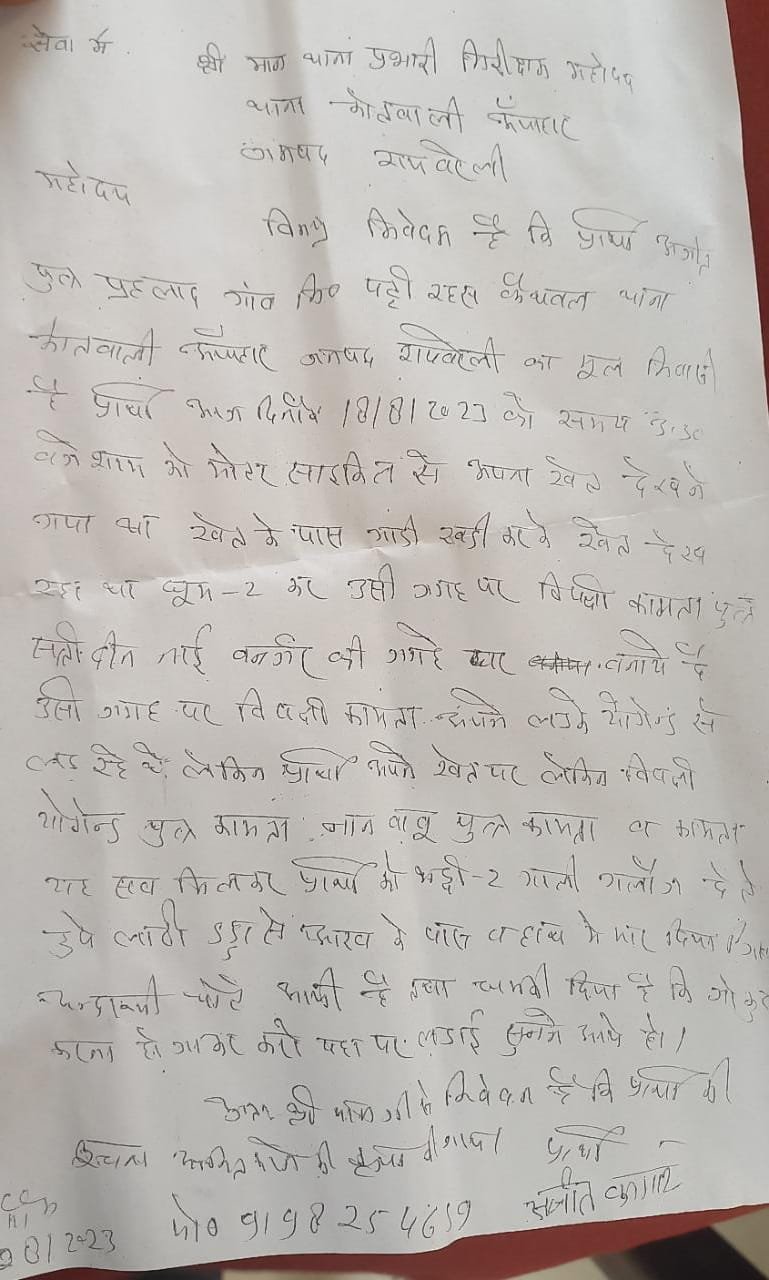 सेवा में
श्री मान थाना प्रभारी निरीक्षक महोदय
थाना कोतवाली ऊँचाहार
जनपद रायबरेली
महोदय
विनम्र निवेदन है कि प्रार्थी अजीत
पुत्र प्रहलाद गांव नि० पट्टी रहस कैथवल थाना
कोतवाली ऊँचाहार जनपद रायबरेली का मूल निवासी
है प्रार्थी आज दिनांक 18/8/2023 को समय
बजे शाम को मोटर साइकिल से अपना खेत देखने
गया था खेत के पास गाडी खडी करके खेत देख
रहा था घूम-2 कर उसी जगह पर विपक्षी कामता पुत्र
नाई बनर्जर की जगहे घर बनाये है
उसी जगह पर विपक्षी कामता अपने लडके योगेन्द्र से
लड रहे थे लेकिन प्रार्थी अपने खेत पर लेकिन विपक्षी
योगेन्द्र पुत्र कामता ज्ञान बाबू पुत्र कामता व कामता
यह सब मिलकर प्रार्थी को भद्दी-2 गाली गलौज देते
हुये लाठी डंडा से आंख के पास व हाथ में मार दिया
चोटें आयी है तथा धमकी दिया है कि जो कुछ
करना हो जाकर करो यहा पर लडाई सुनने आये हो।
अतः श्री मान जी से निवेदन है कि प्रार्थी की
सूचना अंकित करने की कृपा की जाय। प्रार्थी -
मो० 9198254659 अजीत कुमार
8/2023